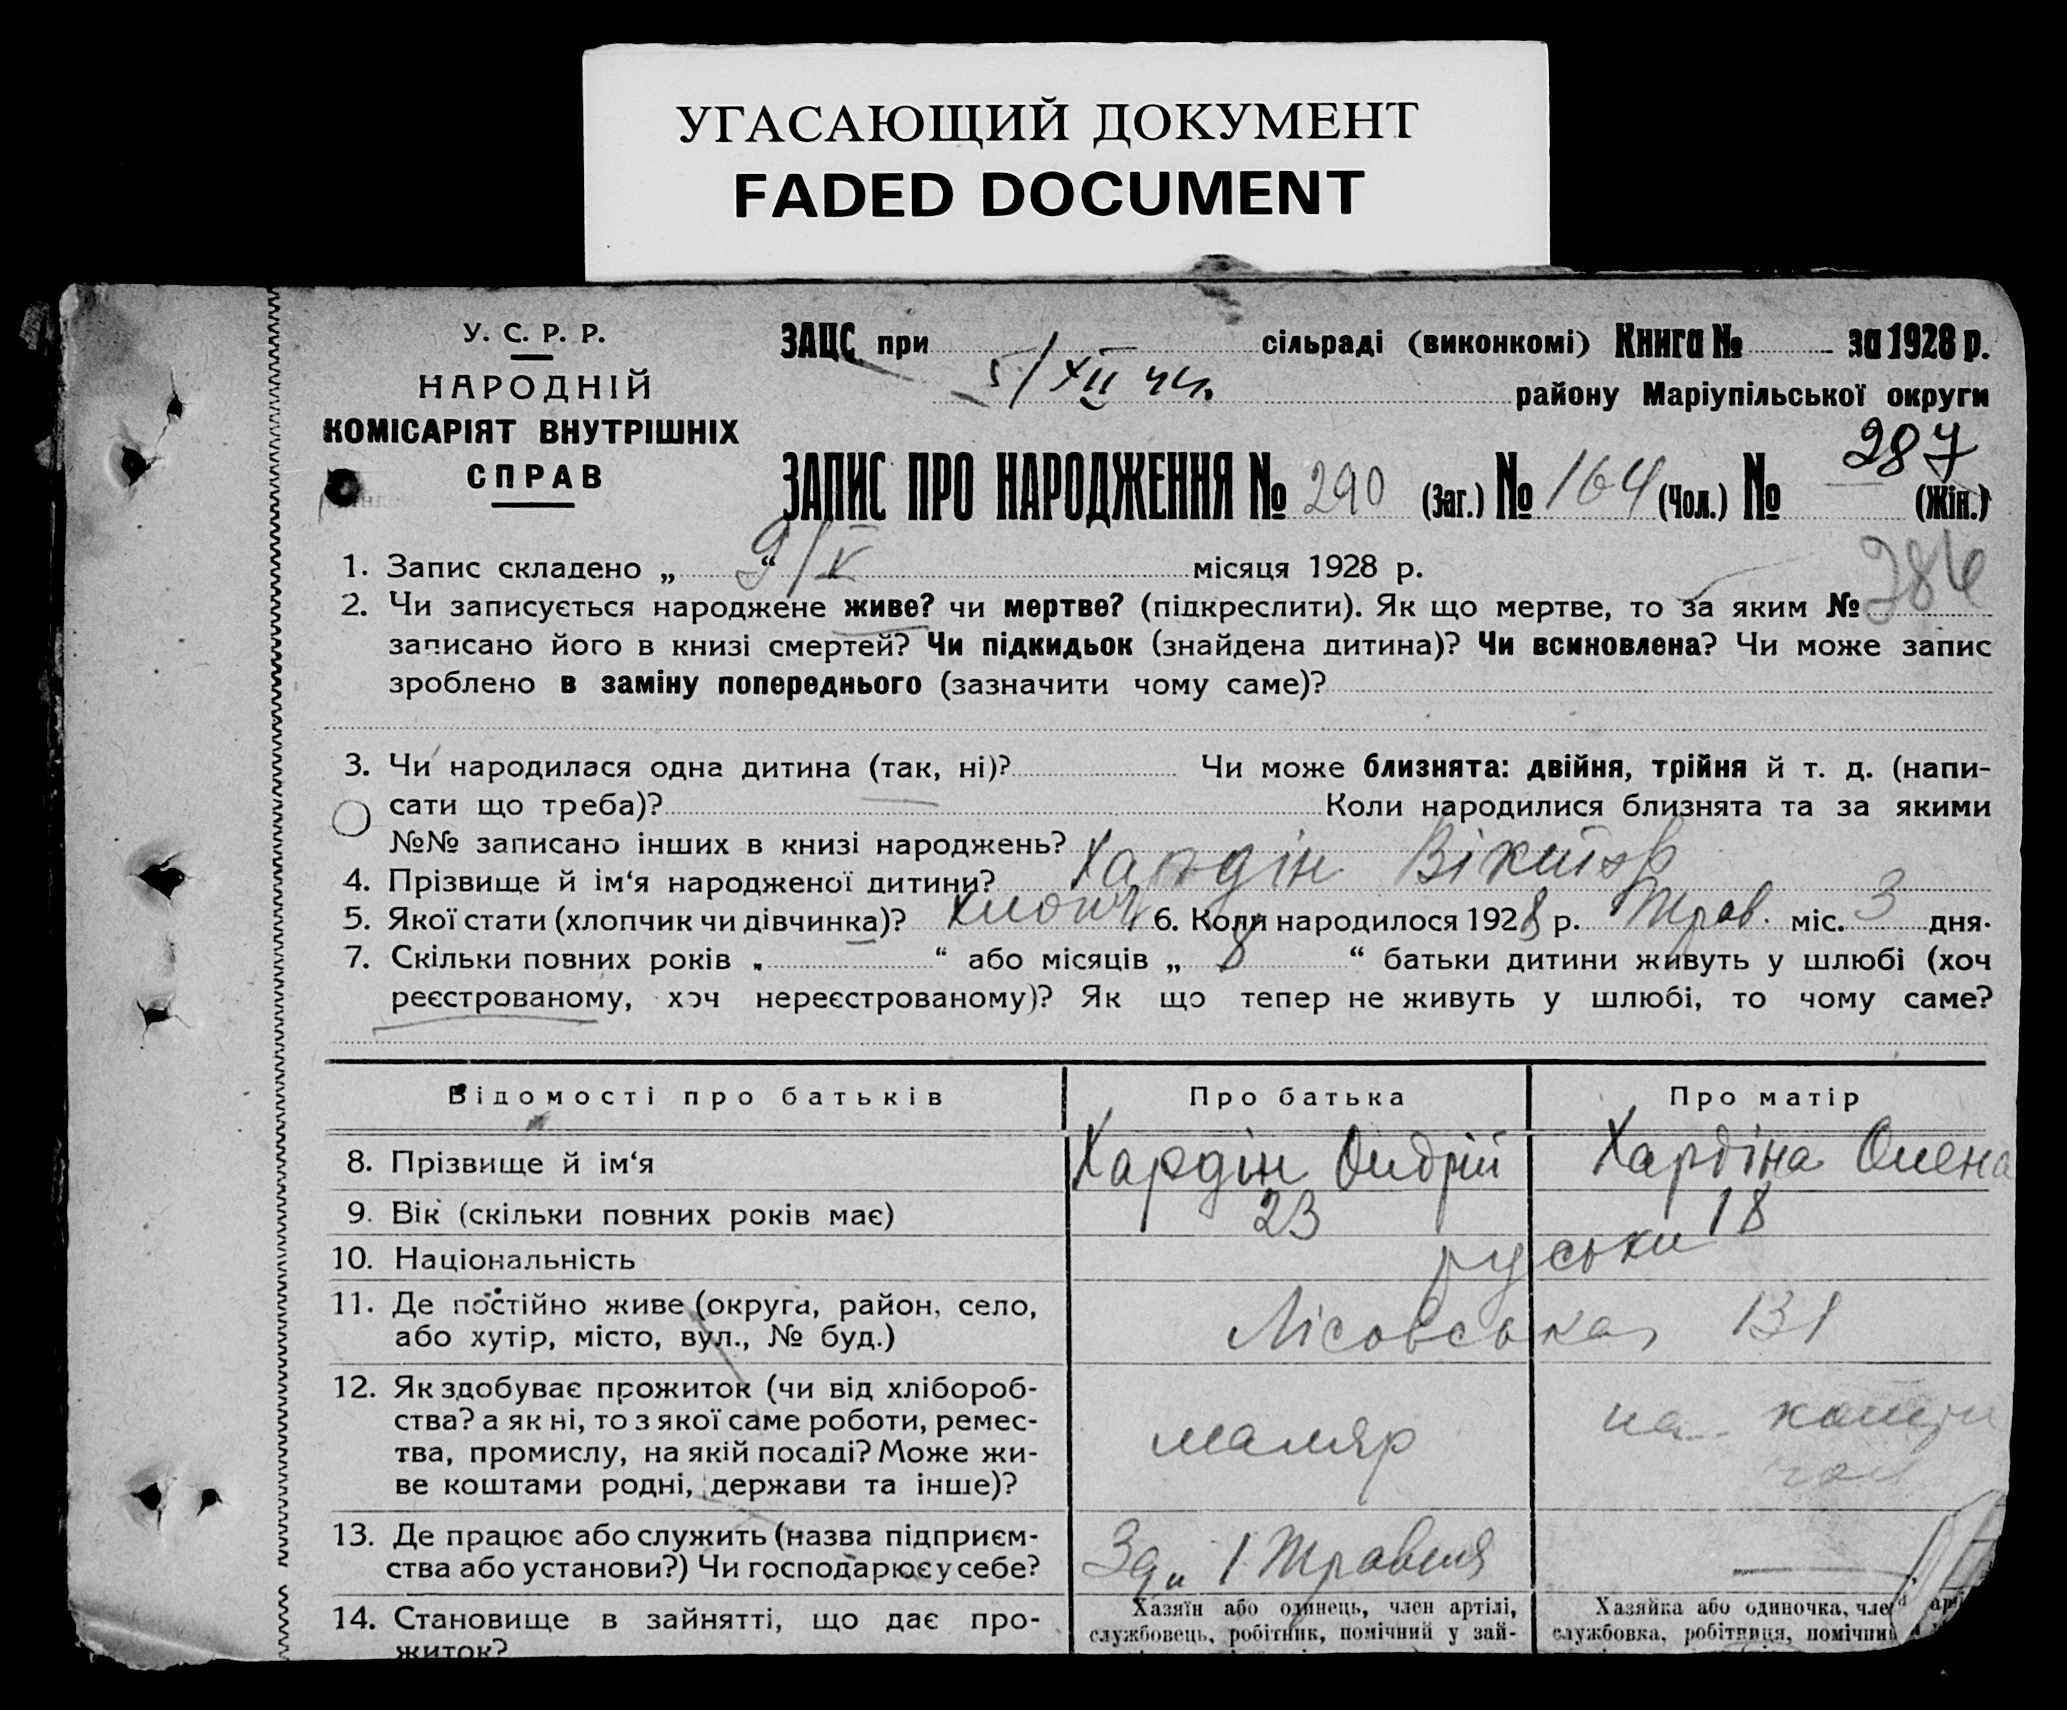 УГАСАЮЩИЙ ДОКУМЕНТ
FADED DOCUMENT
У. С. Р. Р.
НАРОДНІЙ
КОМІСАРІЯТ ВНУТРІШНІХ
СПРАВ
ЗАЦС при сільраді (виконкомі) Книга № за 1928 р.
5/XII 44. району Маріупільської округи
287
ЗАПИС ПРО НАРОДЖЕННЯ № 290 (Заг.) № 164 (Чол.) № (Жін.)
286
1. Запис складено „ 9/V “ місяця 1928 р.
2. Чи записується народжене живе? чи мертве? (підкреслити). Як що мертве, то за яким №
записано його в книзі смертей? Чи підкидьок (знайдена дитина)? Чи всиновлена? Чи може запис
зроблено в заміну попереднього (зазначити чому саме)?
3. Чи народилася одна дитина (так, ні)? Чи може близнята: двійня, трійня й т. д. (напи-
сати що треба)? Коли народилися близнята та за якими
№№ записано інших в книзі народжень?
4. Прізвище й ім‘я народженої дитини? Хардін Віктор
5. Якої стати (хлопчик чи дівчинка)? хлопч 6. Коли народилося 1928 р. Трав. міс. 3 дня.
7. Скільки повних років „ — “ або місяців „ 8 “ батьки дитини живуть у шлюбі (хоч
реєстрованому, хоч нереєстрованому)? Як що тепер не живуть у шлюбі, то чому саме?
Відомості про батьків Про батька Про матір
8. Прізвище й ім‘я Хардін Ондрій Хардіна Олена
9. Вік (скільки повних років має) 23 18
10. Національність руськи
11. Де постійно живе (округа, район, село,
або хутір, місто, вул., № буд.) Лісовська 131
12. Як здобуває прожиток (чи від хлібороб-
ства? а як ні, то з якої саме роботи, ремес-
тва, промислу, на якій посаді? Може жи-
ве коштами родні, держави та інше)? маляр на кошти
чол
13. Де працює або служить (назва підприєм-
ства або установи?) Чи господарює у себе? Зд. 1 Травня —
14. Становище в зайнятті, що дає про-
житок?
Хазяїн або одинець, член артілі,
службовець, робітник, помічний у зай-
Хазяйка або одиночка, член арт
службовка, робітниця, помічний